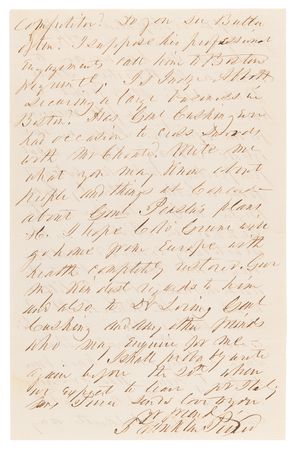 competitor? Do you see Butler
often? I suppose his professional
engagements call him to Boston
frequently, Is Judge Abbott
securing a large business in
Boston? Has Genl Cushing ever
had occasion to cross swords
with Mr Choate. Write me
what you may know about
people and things at Concord
about Genl Peaslee's plans
&c. I hope Col. Greene will
go home from Europe with
health completely restored. Give
my kindest regards to him
and also to Dr Loring, Genl
Cushing and any other friends
who may enquire for me.
I shall probably write
again before the 20th when
we expect to leave for Italy
Mrs Pierce sends love to you
Yr friend
Franklin Pierce